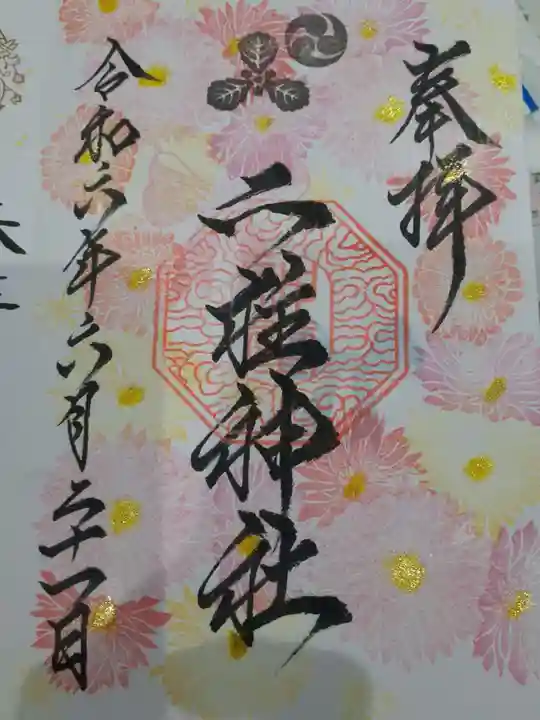 奉拝
六種神社
令和六年六月二十一日